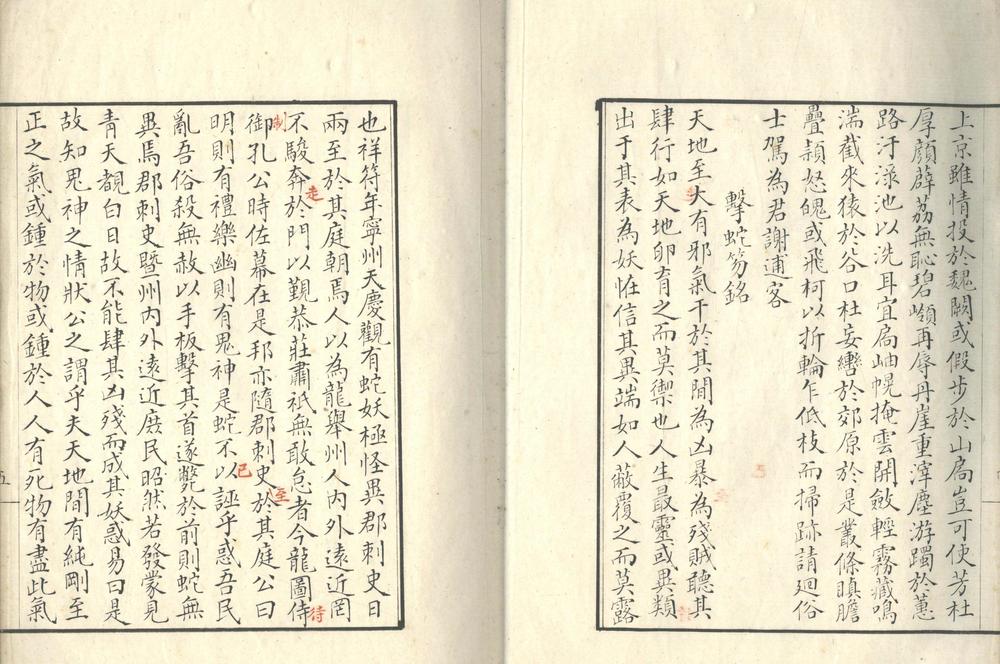 上京雖情投於魏闕或假步於山扃豈可使芳杜
厚顏薜荔無恥碧嶺再辱丹崖重滓塵游躅於蕙
路汙淥池以洗耳宜扃岫幌掩雲開斂輕霧藏鳴
湍截來猿於谷口杜妄轡於郊原於是叢條瞋膽
疊穎怒魄或飛柯以折輪乍低枝而掃跡請迴俗
士駕為君謝逋客
擊蛇笏銘
天地至大有邪氣干於其間為凶暴為殘賊聽其
肆行如天地卵育之而莫禦也人生最靈或異類
出于其表為妖恠信其異端如人蔽覆之而莫露
也祥符年寧州天慶觀有蛇妖極怪異郡刺史日
兩至於其庭朝焉人以為龍舉州人內外遠近罔
不駿奔於門以覲恭莊肅祗無敢怠者今龍圖侍
走
待
御孔公時佐幕在是邦亦隨郡刺史於其庭公曰
制
至
明則有禮樂幽則有鬼神是蛇不以誣乎惑吾民
已
亂吾俗殺無赦以手板擊其首遂斃於前則蛇無
異焉郡刺史暨州內外遠近庶民昭然若發蒙見
青天覩白日故不能肆其凶殘而成其妖惑易曰是
故知鬼神之情狀公之謂乎夫天地間有純剛至
正之氣或鍾於物或鍾於人人有死物有盡此氣
五